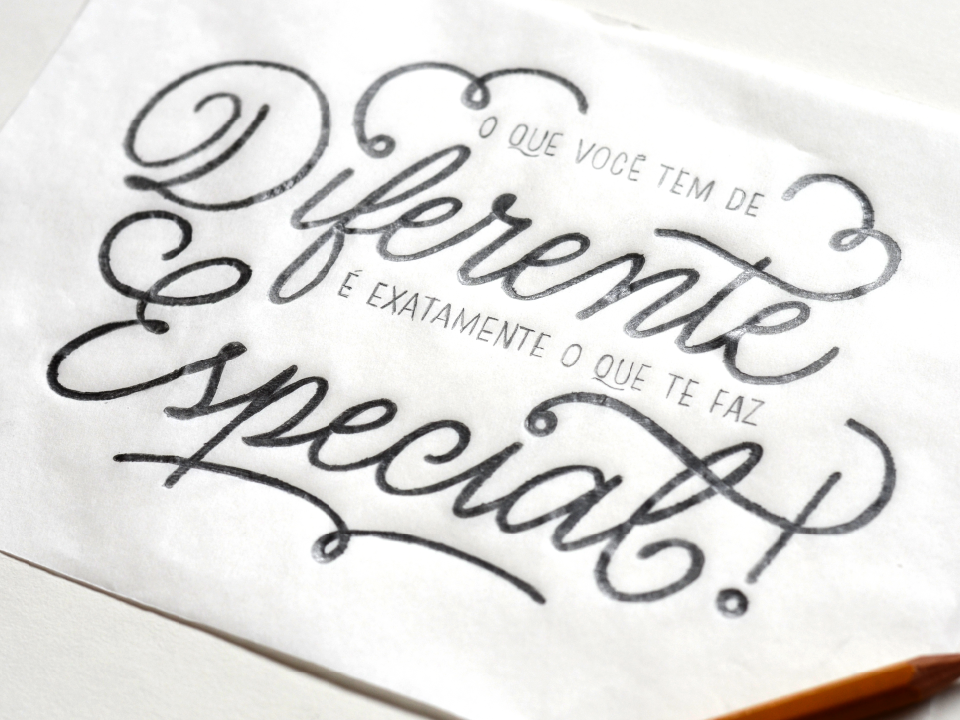 O QUE VOCÊ TEM DE
Diferente
É EXATAMENTE O QUE TE FAZ
Especial!